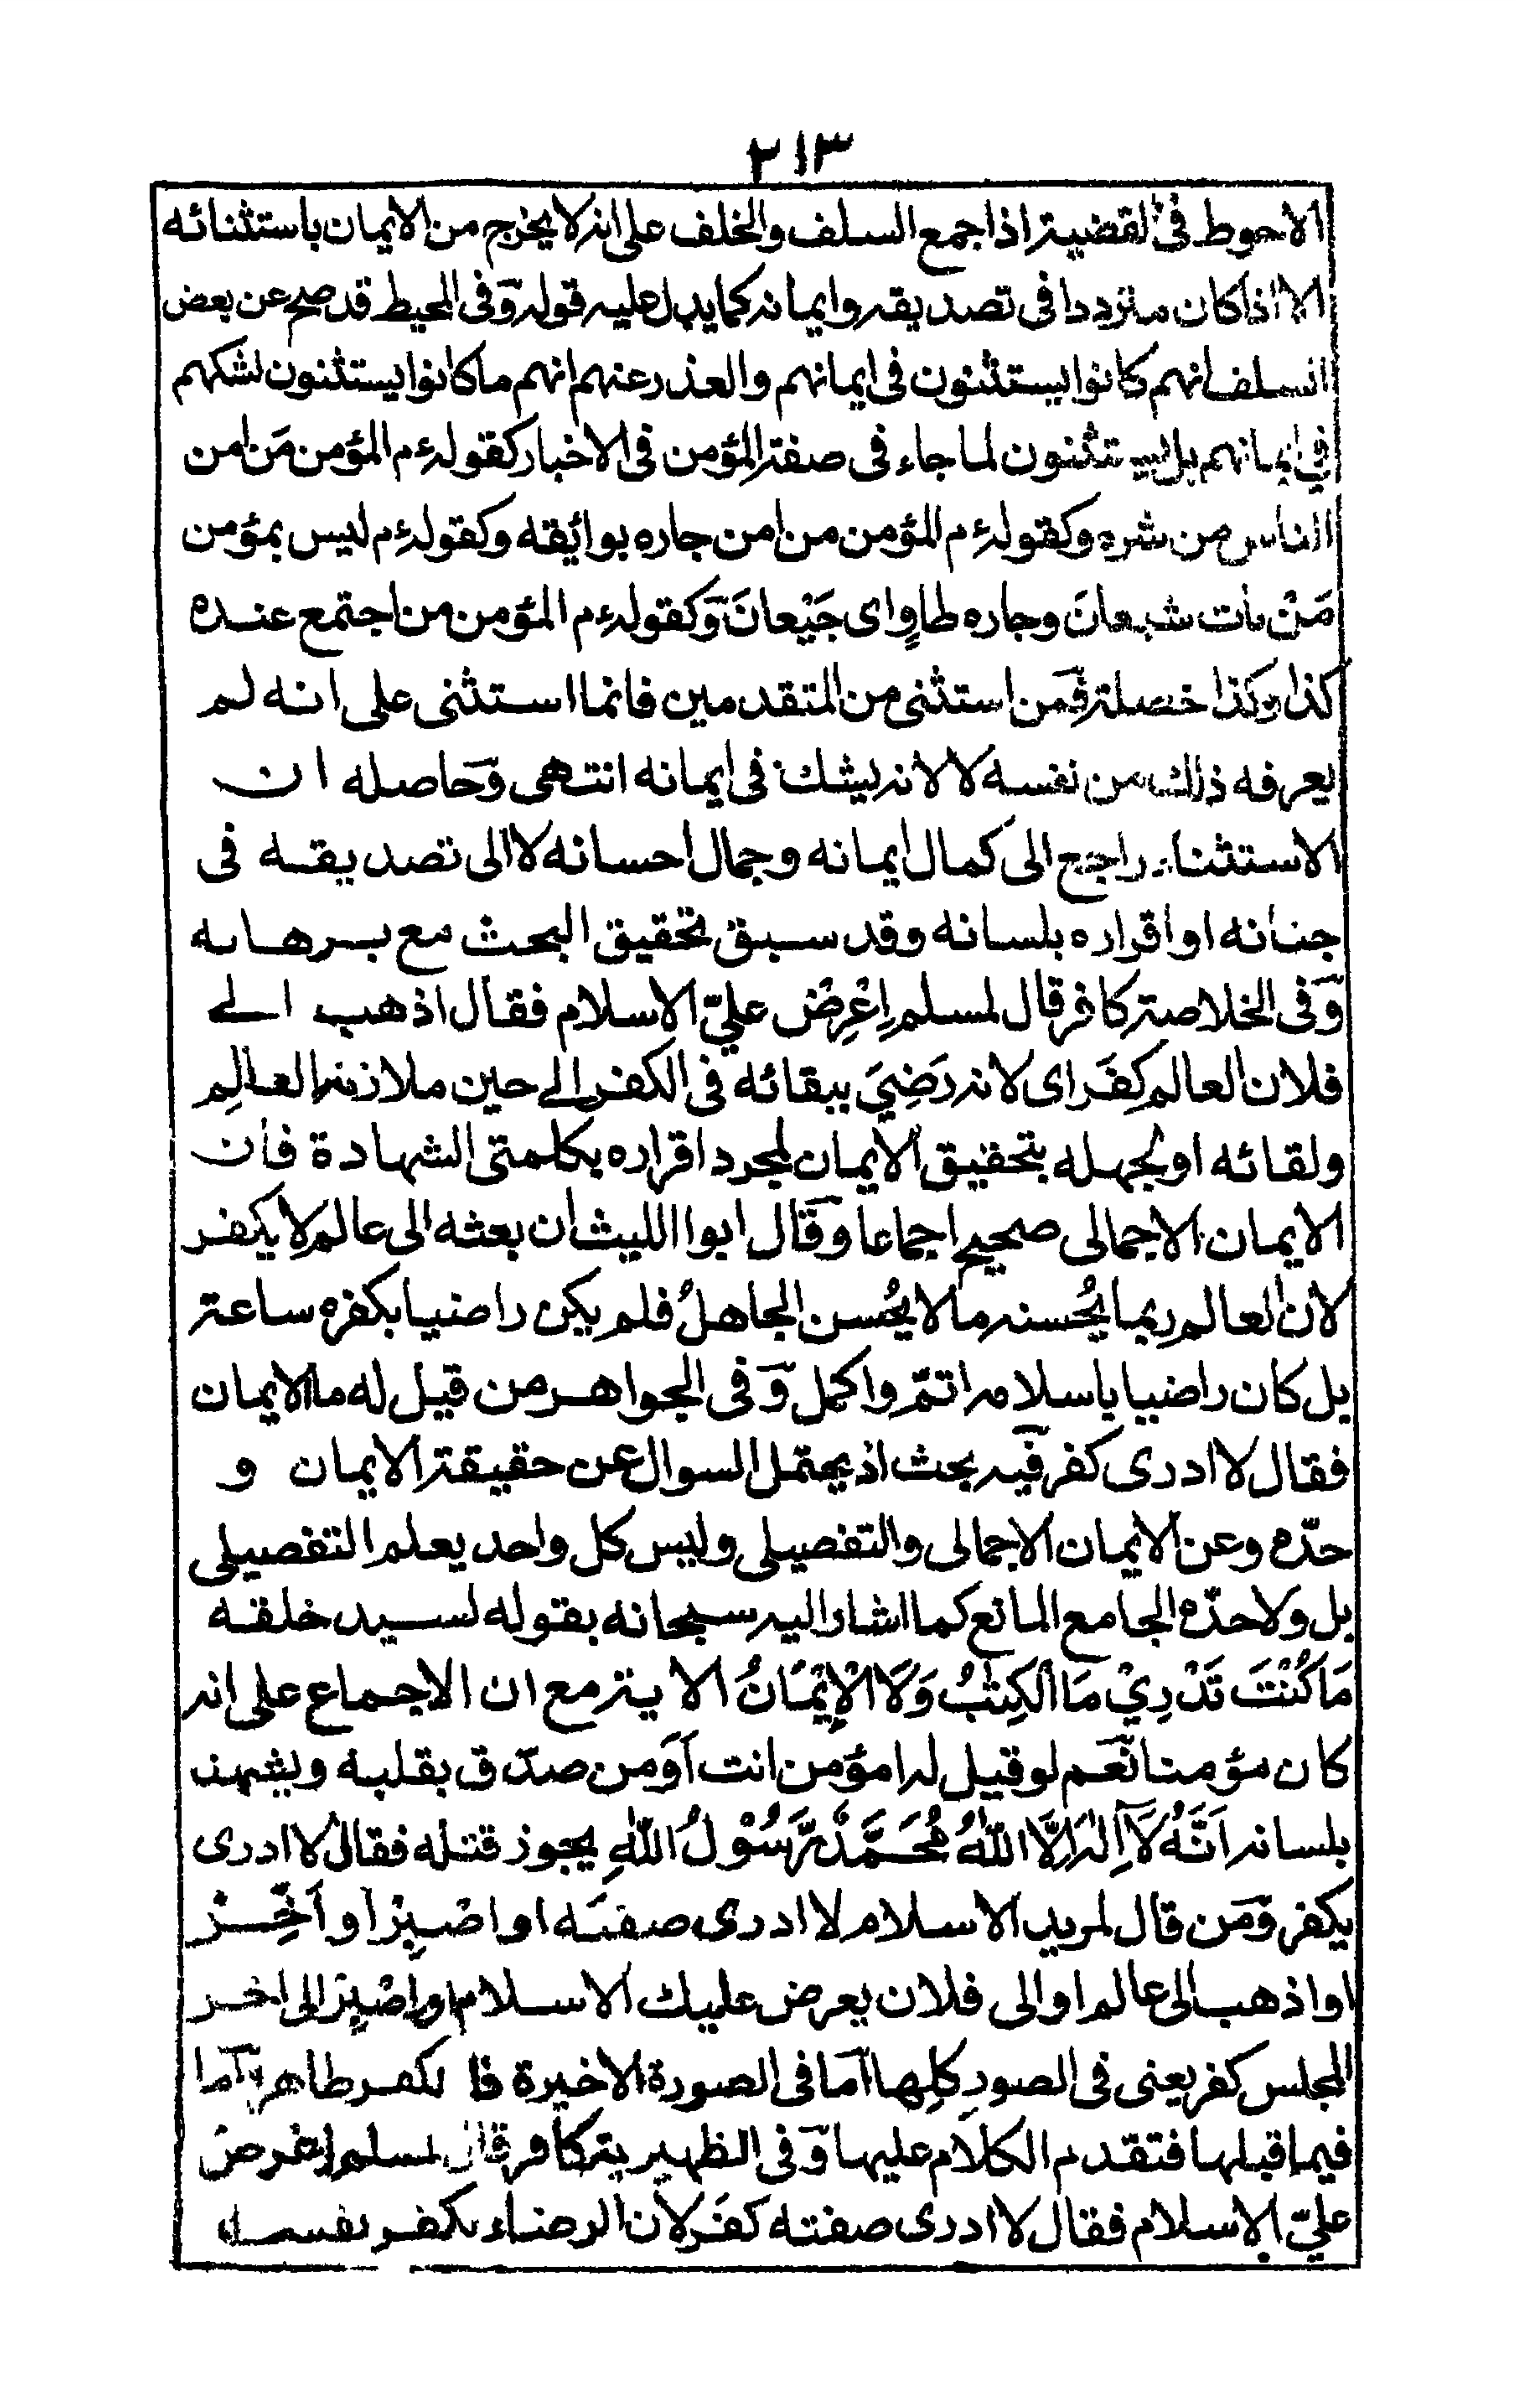 ٢١٣
الاحوط فى القضية اذا جمع السلف والخلف على انه لا يخرج من الايمان باستثنائه
الا اذا كان مترددا فى تصديقه وايمانه كما يدل عليه قوله وفى المحيط قد صح عن بعض
السلف انهم كانوا يستثنون فى ايمانهم والعذر عنهم انهم ما كانوا يستثنون لشكهم
فى ايمانهم بل يستثنون لما جاء فى صفة المؤمن فى الاخبار كقوله ءم المؤمن مَن امن
الناس من شره وكقوله ءم المؤمن من امن جاره بوائقه وكقوله ءم ليس بمؤمن
مَنْ بات شبعانَ وجاره طاوٍ اى جَيْعانَ وكقوله ءم المؤمن من اجتمع عنده
كذا وكذا خصلة فمن استثنى من المتقدمين فانما استثنى على انه لم
يعرفه ذلك من نفسه لا لانه يشك فى ايمانه انتهى وحاصله ان
الاستثناء راجع الى كمال ايمانه وجمال احسانه لا الى تصديقه فى
جنانه او اقراره بلسانه وقد سبق تحقيق البحث مع برهانه
وفى الخلاصة كافر قال لمسلم اِعْرِضْ عليّ الاسلام فقال اذهب الے
فلان العالم كفَر اى لانه رَضِيَ ببقائه فى الكفر الے حين ملازمة العالِم
ولقائه او لجهله بتحقيق الايمان لمجرد اقراره بكلمتى الشهادة فان
الايمان الاجمالى صحيح اجماعا وقال ابوا الليث ان بعثه الى عالم لا يكفر
لان العالم ربما يُحسنه ما لا يُحسن الجاهلُ فلم يكن راضيا بكفره ساعة
بل كان راضيا باسلامه اتمّ واكمل وفى الجواهر من قيل له ما الايمان
فقال لا ادرى كفر فيه بحث اذ يحتمل السوال عن حقيقة الايمان و
حدّه وعن الايمان الاجمالى والتفصيلى وليس كل واحد يعلم التفصيلى
بل ولا حدّه الجامع المانع كما اشار اليه سبحانه بقوله لسيد خلقه
مَا كُنْتَ تَدْرِيْ مَا الْكِتٰبُ وَلَا الْاِيْمَانُ الاية مع ان الاجماع على انه
كان مؤمنا نعم لو قيل له امؤمن انت اَوَ من صدّق بقلبه ويشهد
بلسانه اَنَّهُ لَآ اِلٰهَ اِلَّا اللّٰهُ مُحَمَّدٌ رَّسُوْلُ اللّٰهِ يجوز قتله فقال لا ادرى
يكفر ومن قال لمريد الاسلام لا ادرى صفته او اصْبِرْ او اَخِّرْ
او اذهب الى عالم او الى فلان يعرض عليك الاسلام او اصْبِرْ الى اخر
المجلس كفر يعنى فى الصورِ كلِها اما فى الصورة الاخيرة فالكفر ظاهر واما
فيما قبلها فتقدم الكلام عليها وفى الظهيرية كافر قال لمسلم اِعْرِضْ
عليّ الاسلام فقال لا ادرى صفته كفَر لان الرضاء بكفر نفسه